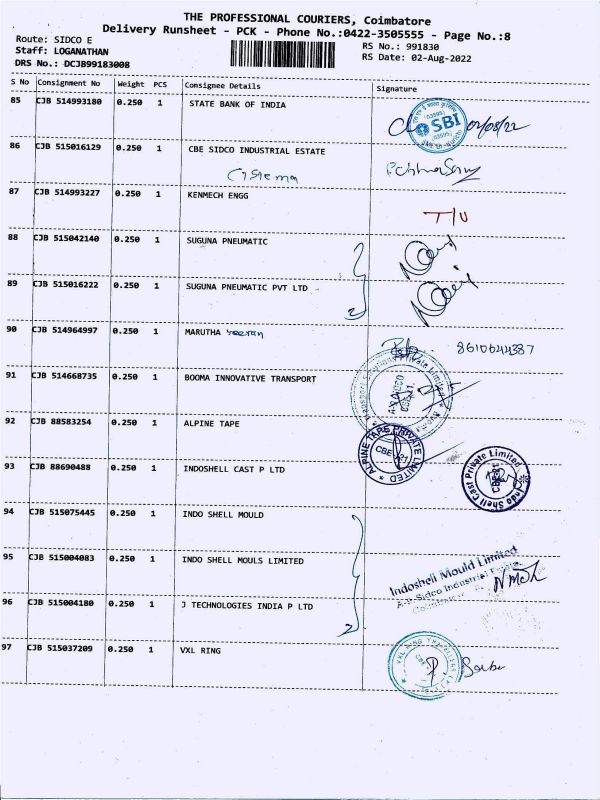 THE PROFESSIONAL COURIERS, Coimbatore
Delivery Runsheet - PCK - Phone No.:0422-3505555 - Page No.:8
Route: SIDCO E
RS No.: 991830
Staff: LOGANATHAN
RS Date: 02-Aug-2022
DRS No.: DCJB99183008
S No Consignment No Weight PCS Consignee Details Signature
85 CJB 514993180 0.250 1 STATE BANK OF INDIA
SBI 02/08/22
86 CJB 515016129 0.250 1 CBE SIDCO INDUSTRIAL ESTATE
87 CJB 514993227 0.250 1 KENMECH ENGG
T/U
88 CJB 515042140 0.250 1 SUGUNA PNEUMATIC
89 CJB 515016222 0.250 1 SUGUNA PNEUMATIC PVT LTD
2
90 CJB 514964997 0.250 1 MARUTHA veeran
8610644387
91 CJB 514668735 0.250 1 BOOMA INNOVATIVE TRANSPORT
92 CJB 88583254 0.250 1 ALPINE TAPE
ALPINE TAPE PRIVATE LIMITED
CBE - 21
93 CJB 88690488 0.250 1 INDOSHELL CAST P LTD
Indo Shell Cast Private Limited
94 CJB 515075445 0.250 1 INDO SHELL MOULD
95 CJB 515004083 0.250 1 INDO SHELL MOULS LIMITED
Indoshell Mould Limited
96 CJB 515004180 0.250 1 J TECHNOLOGIES INDIA P LTD
2
97 CJB 515037209 0.250 1 VXL RING